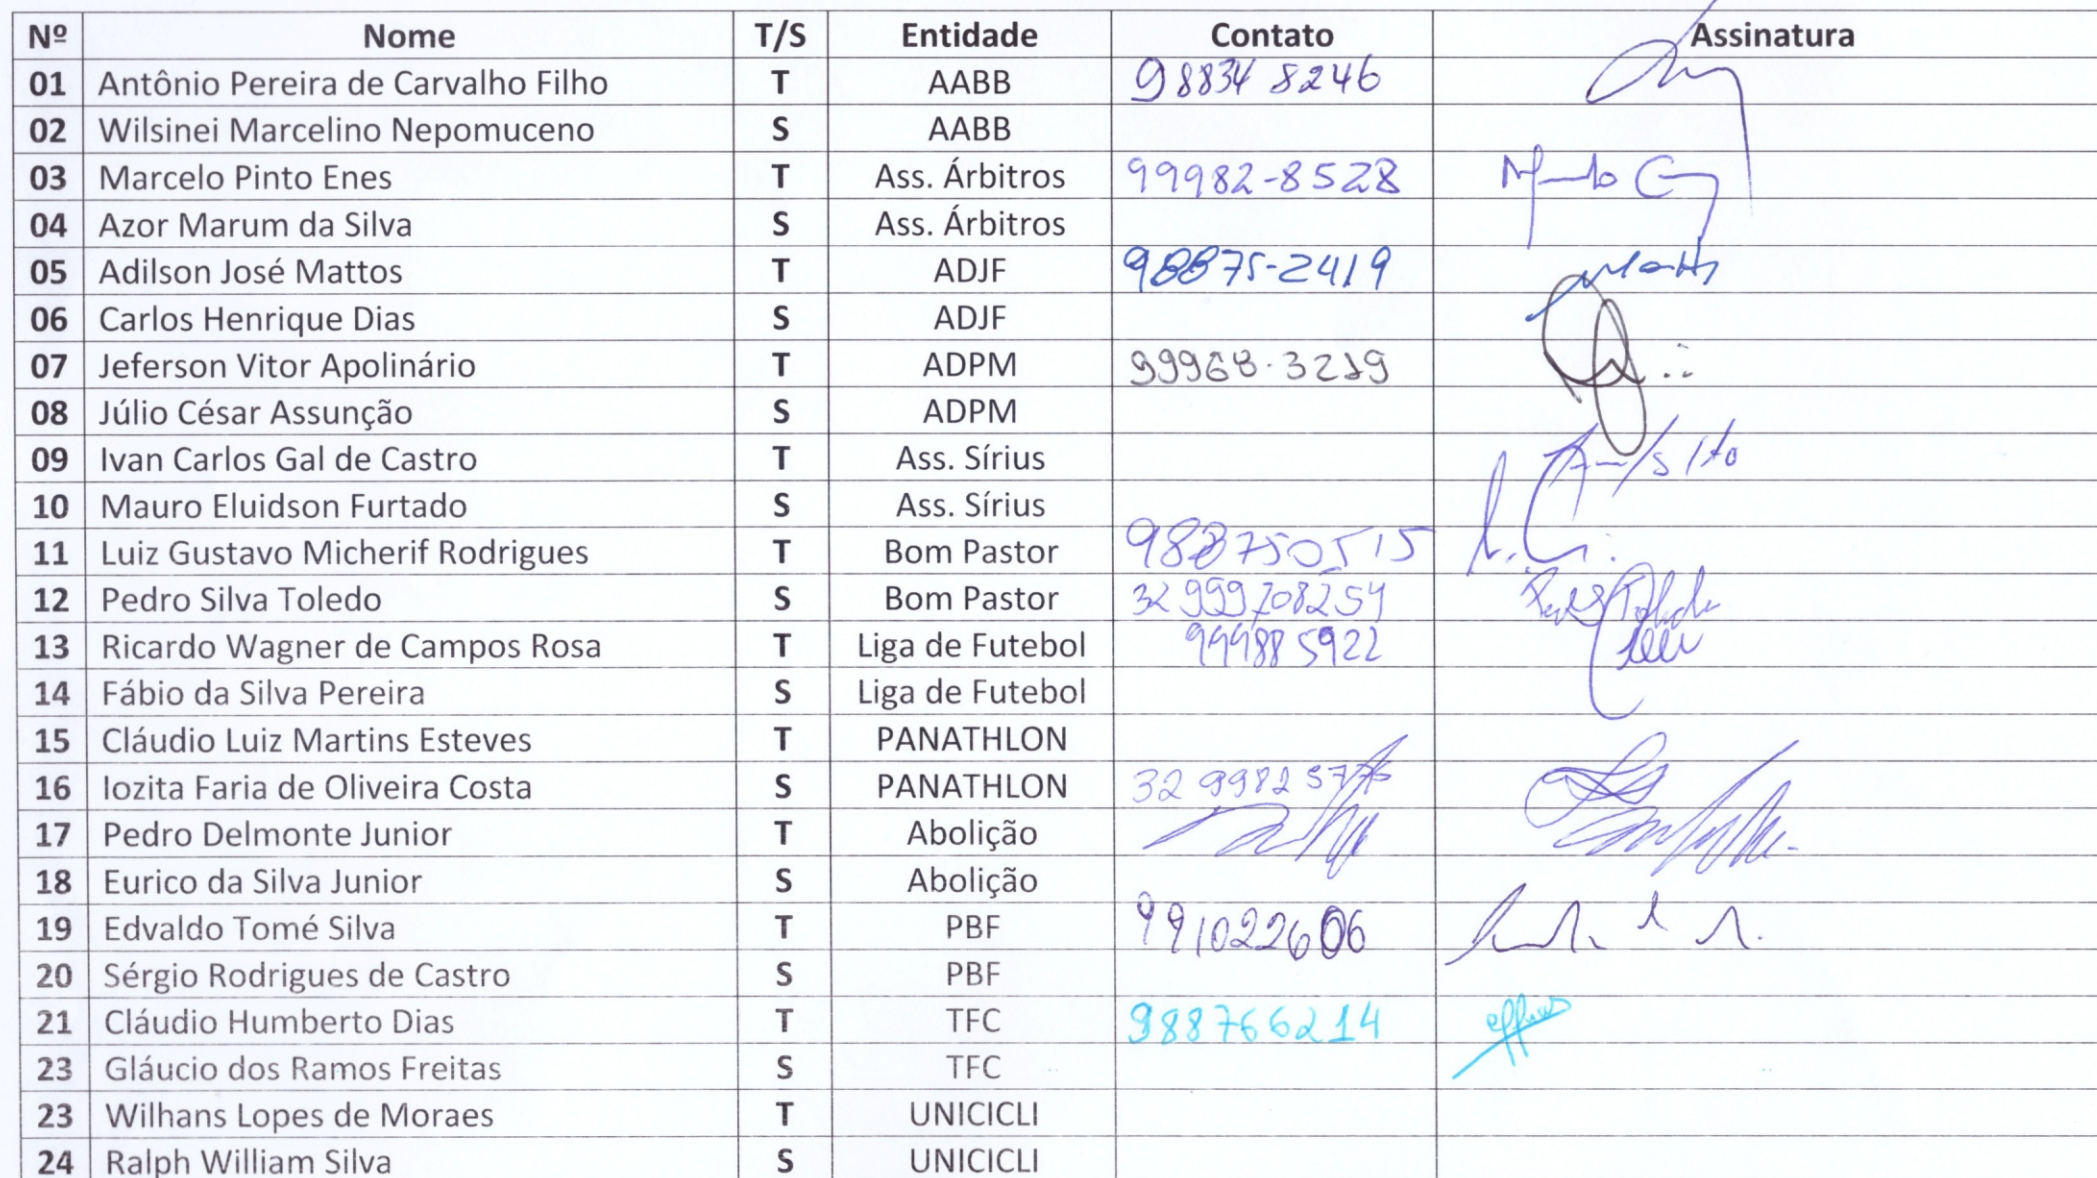 Nº Nome T/S Entidade Contato Assinatura
01 Antônio Pereira de Carvalho Filho T AABB 98834 8246
02 Wilsinei Marcelino Nepomuceno S AABB
03 Marcelo Pinto Enes T Ass. Árbitros 99982-8528
04 Azor Marum da Silva S Ass. Árbitros
05 Adilson José Mattos T ADJF 98875-2419
06 Carlos Henrique Dias S ADJF
07 Jeferson Vitor Apolinário T ADPM 99968-3219
08 Júlio César Assunção S ADPM
09 Ivan Carlos Gal de Castro T Ass. Sírius
10 Mauro Eluidson Furtado S Ass. Sírius
11 Luiz Gustavo Micherif Rodrigues T Bom Pastor 988750515
12 Pedro Silva Toledo S Bom Pastor 32 999708254
13 Ricardo Wagner de Campos Rosa T Liga de Futebol 999885922
14 Fábio da Silva Pereira S Liga de Futebol
15 Cláudio Luiz Martins Esteves T PANATHLON
16 Iozita Faria de Oliveira Costa S PANATHLON
17 Pedro Delmonte Junior T Abolição
18 Eurico da Silva Junior S Abolição
19 Edvaldo Tomé Silva T PBF 991022606
20 Sérgio Rodrigues de Castro S PBF
21 Cláudio Humberto Dias T TFC 988766214
23 Gláucio dos Ramos Freitas S TFC
23 Wilhans Lopes de Moraes T UNICICLI
24 Ralph William Silva S UNICICLI